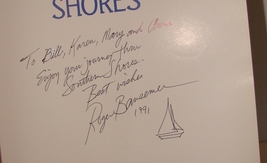 SHORES
To Bill, Karen, Mary and
Enjoy your journey thru
Southern Shores.
Best wishes
Roger Bansemer
1991